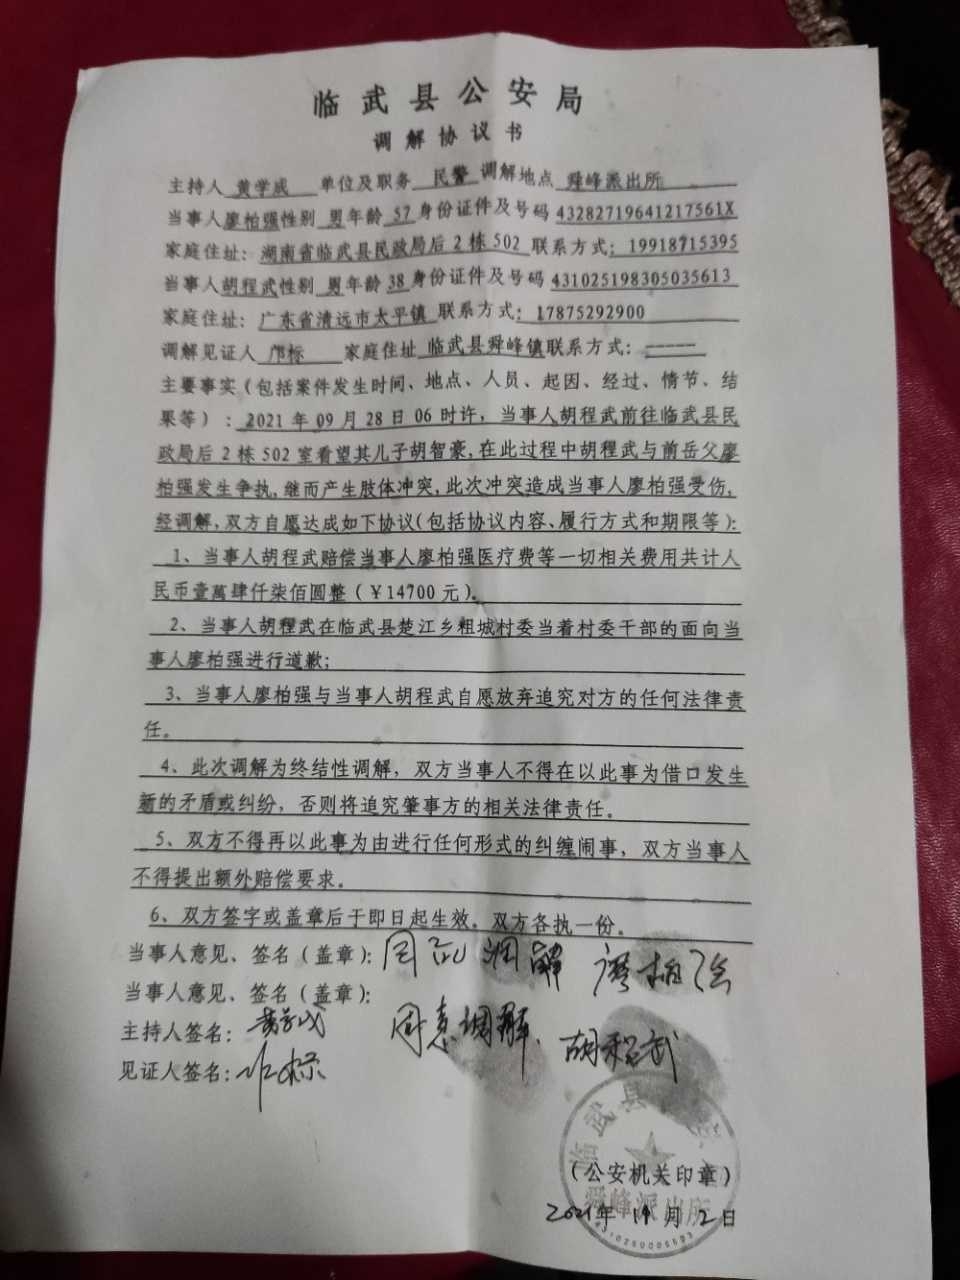 临武县公安局
调解协议书
主持人 黄学成 单位及职务 民警 调解地点 舜峰派出所
当事人廖柏强性别 男年龄 57身份证件及号码 43282719641217561X
家庭住址：湖南省临武县民政局后2栋502 联系方式：19918715395
当事人胡程武性别 男年龄 38身份证件及号码 431025198305035613
家庭住址：广东省清远市太平镇 联系方式：17875292900
调解见证人 邝标 家庭住址 临武县舜峰镇联系方式：-----
主要事实（包括案件发生时间、地点、人员、起因、经过、情节、结
果等）：2021年09月28日06时许，当事人胡程武前往临武县民
政局后2栋502室看望其儿子胡智豪，在此过程中胡程武与前岳父廖
柏强发生争执，继而产生肢体冲突，此次冲突造成当事人廖柏强受伤，
经调解，双方自愿达成如下协议（包括协议内容、履行方式和期限等）：
1、当事人胡程武赔偿当事人廖柏强医疗费等一切相关费用共计人
民币壹萬肆仟柒佰圆整（￥14700元）。
2、当事人胡程武在临武县楚江乡粗城村委当着村委干部的面向当
事人廖柏强进行道歉；
3、当事人廖柏强与当事人胡程武自愿放弃追究对方的任何法律责
任。
4、此次调解为终结性调解，双方当事人不得在以此事为借口发生
新的矛盾或纠纷，否则将追究肇事方的相关法律责任。
5、双方不得再以此事为由进行任何形式的纠缠闹事，双方当事人
不得提出额外赔偿要求。
6、双方签字或盖章后于即日起生效，双方各执一份。
当事人意见、签名（盖章）：同意调解 廖柏强
当事人意见、签名（盖章）：
主持人签名：黄学成 同意调解、胡程武
见证人签名：邝标
临武县
（公安机关印章）
舜峰派出所
2021年 月2日